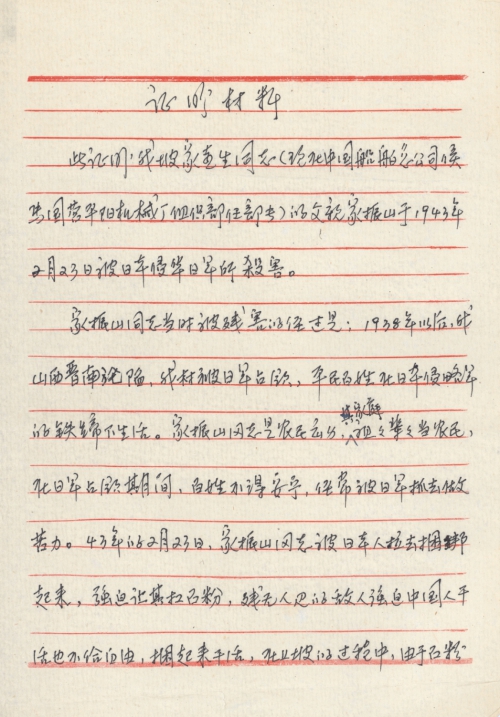 证明材料
此证明,我坡家直生同志(现在中国船舶总公司侯
马国营平阳机械厂组织部任部长)的父亲家振山于1943年
2月23日被日本侵华日军所杀害。
家振山同志当时被残害的经过是:1938年以后,我
山西晋南沦陷,我村被日军占领,平民百姓在日本侵略军
的铁蹄下生活。家振山同志是农民出身,其家庭祖祖辈辈当农民,
在日军占领其间,百姓不得安宁,经常被日军抓去做
苦力。43年的2月23日,家振山同志被日本人拉去捆绑
起来,强迫让其扛石粉,残无人忍的敌人强迫中国人干
活也不给自由,捆起来干活,在上坡的过程中,由于石粉